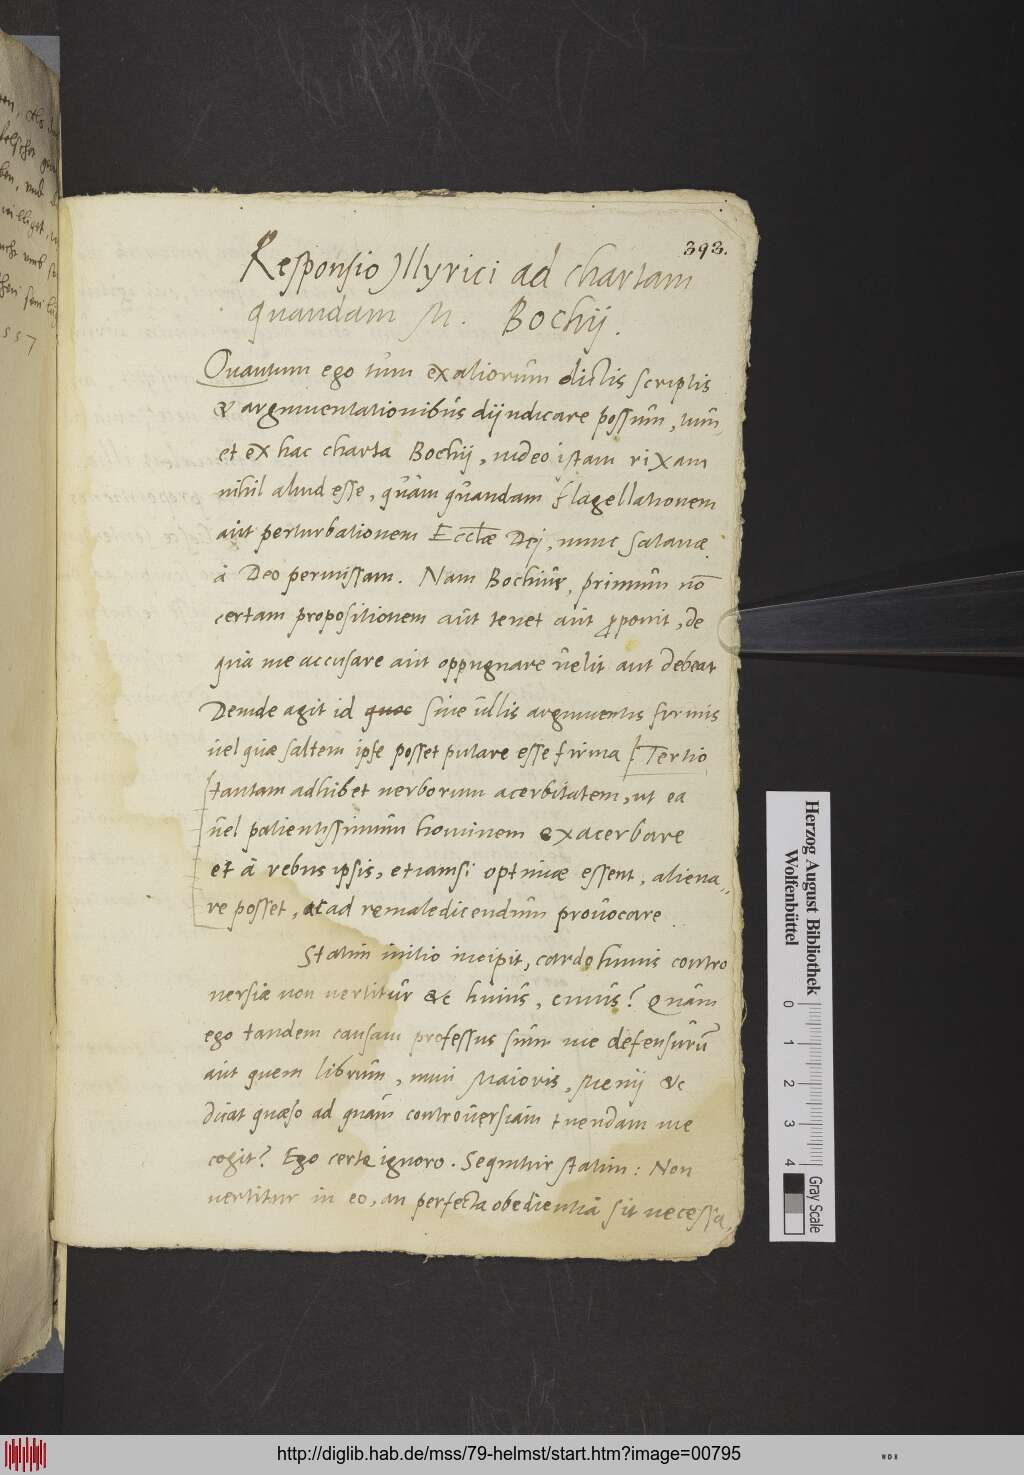 393.
Responsio Illyrici ad chartam
quandam M. Bochij.
Quantum ego tum ex aliorum dictis scriptis
& argumentationibus dijudicare possum, tum
et ex hac charta Bochij, video istam rixam
nihil aliud esse, quàm quandam flagellationem
aut perturbationem Eccłæ Dej, nunc Satanæ
à Deo permissam. Nam Bochius, primùm nō
certam propositionem aut tenet aut proponit, de
qua me accusare aut oppugnare velit aut debeat
Deinde agit id quoc sine ullis argumentis firmis
vel quæ saltem ipse posset putare esse firma Tertio
tantam adhibet verborum acerbitatem, ut ea
vel patientissimum hominem exacerbare
et à rebus ipsis, etiamsi optimæ essent, aliena„
re posset, ac ad remaledicendum provocare
Statim initio incipit, cardo huius contro
versiæ non vertitur &c huius, cuius? Quàm
ego tandem causam professus sum me defensurū
aut quem librum, num Maioris, Menij &c
dicat quæso ad quam controversiam tuendam me
cogit? Ego certe ignoro. Sequitur statim: Non
vertitur in eo, an perfecta obedientia sit necessa„
Herzog August Bibliothek
Wolfenbüttel
0 1 2 3 4
Gray Scale
http://diglib.hab.de/mss/79-helmst/start.htm?image=00795